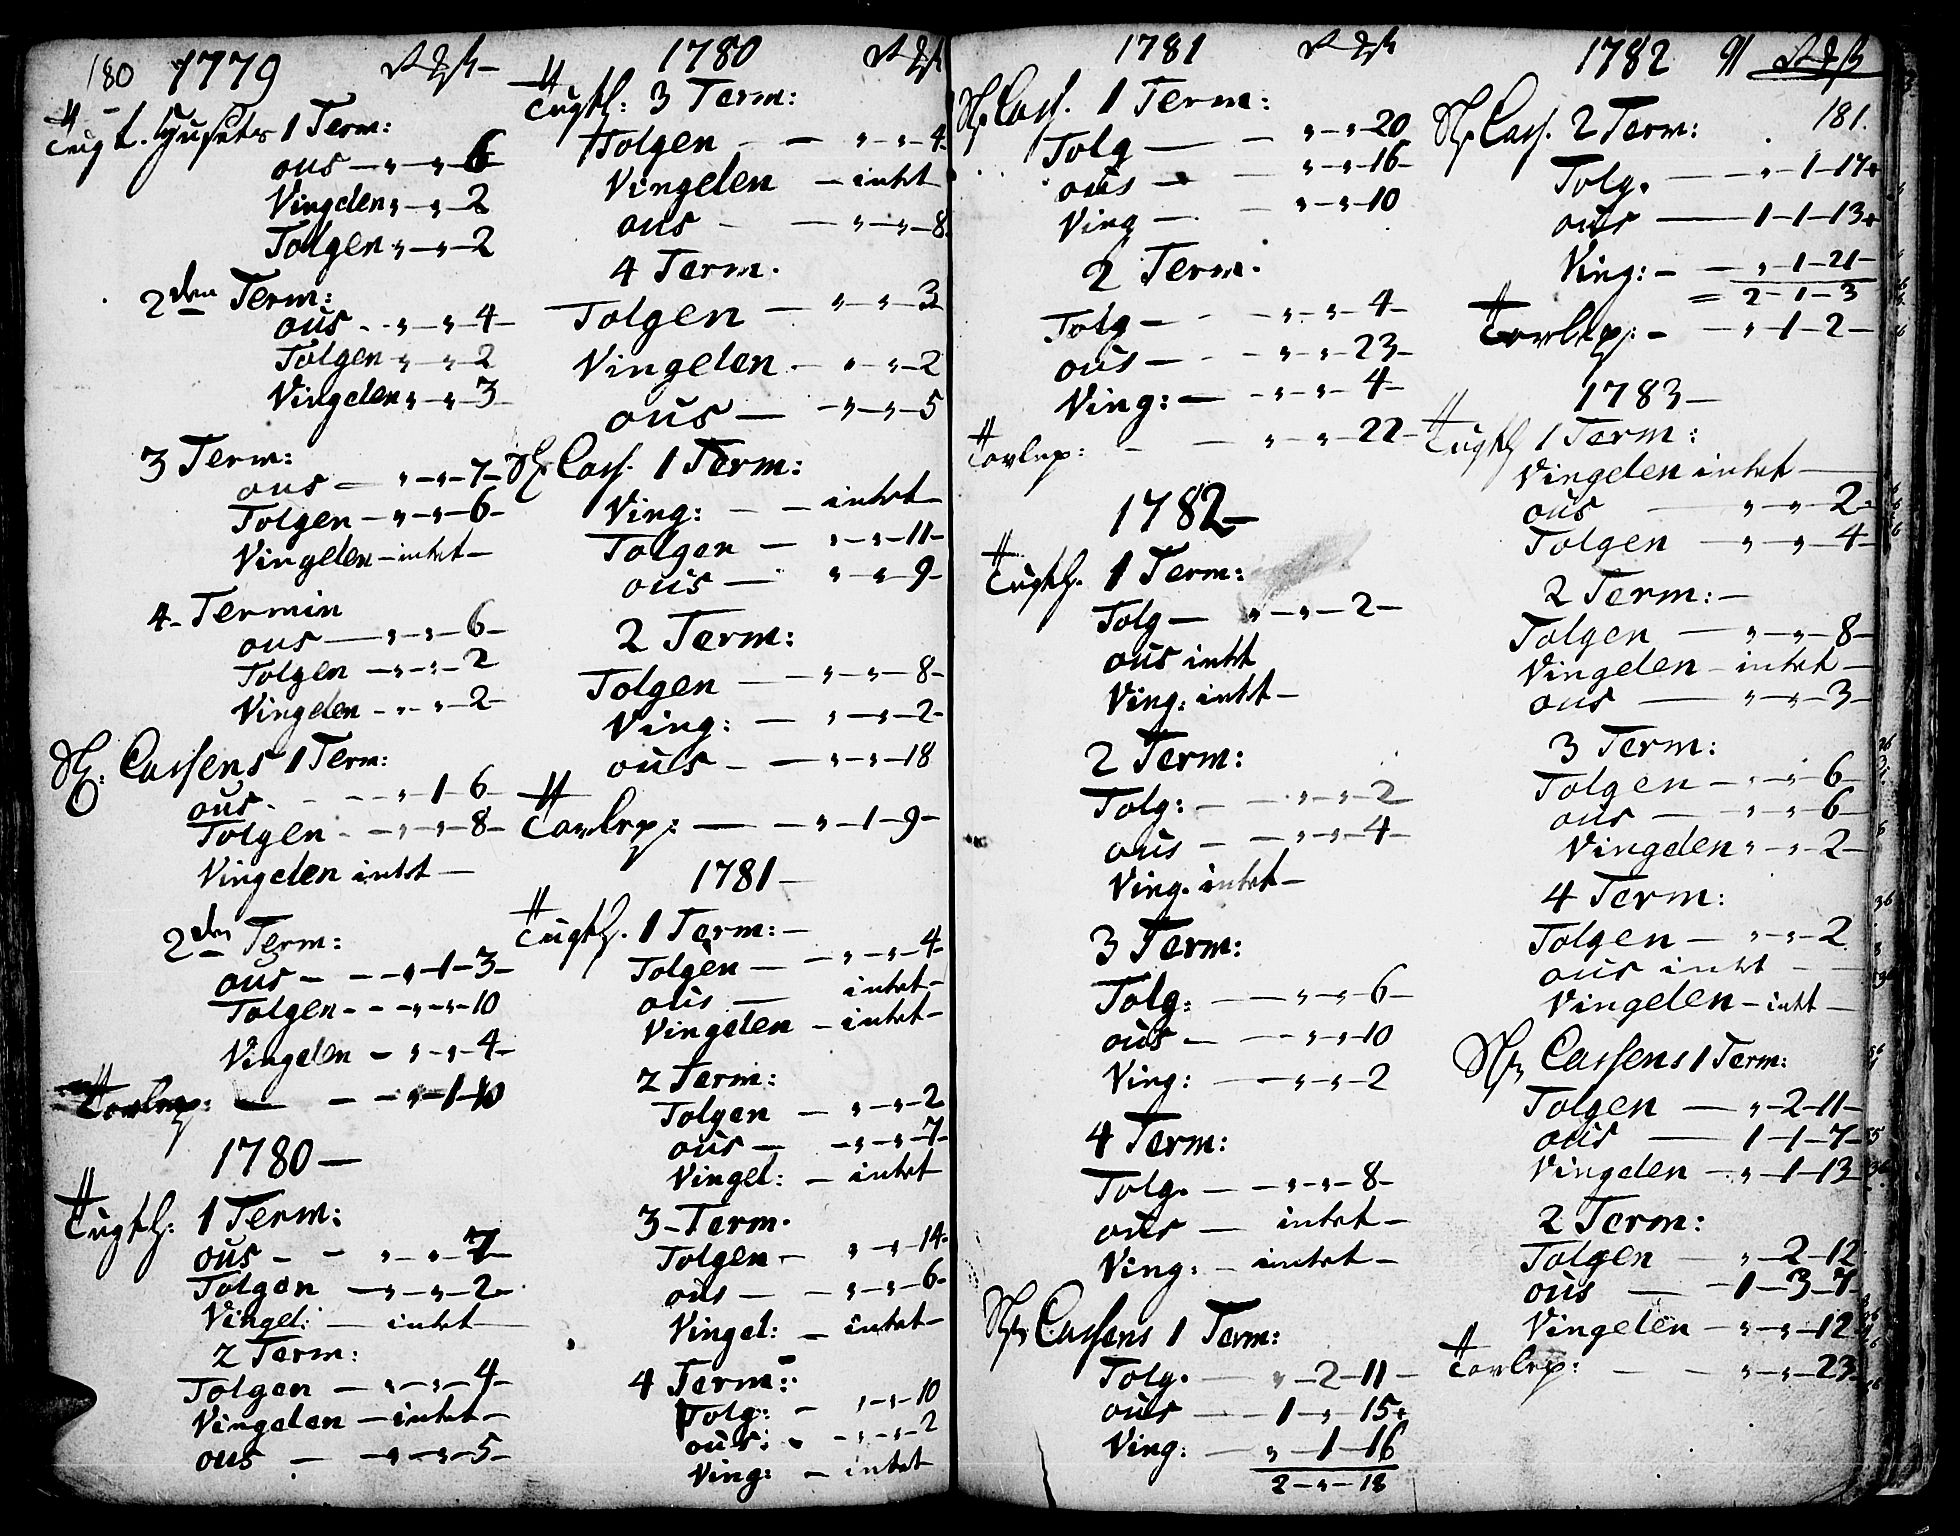 180 1779
Tugt. Husets 1 Term:
ous — „ — „ — 6
Vingelen „ — „ — 2
Tolgen „ — „ — 2
2den Term:
ous - „ — „ — 4 —
Tolgen — „ — „ — 2
Vingelen „ — „ — 3 —
3 Term:
ous — „ — „ — 7 —
Tolgen — „ — „ — 6 —
Vingelen — intet —
4 - Termin
ous — „ — „ — 6 —
Tolgen — „ — „ — 2
Vingelen — „ — „ — 2 —
Cassens 1 Term:
ous - — „ — 1 — 6 —
Tolgen - — „ — „ — 8 —
Vingelen intet —
2den Term:
ous — — „ — 1 — 3 —
Tolgen - — „ — „ — 10
Vingelen — „ — „ — 4 —
— — „ — 1 — 10
1780 —
Tugth: 1 Term:
ous - — „ — „ — 7 —
Tolgen — „ — „ — 2 —
Vingel: — intet —
2 Term:
Tolgen — „ — „ — 4 —
Vingelen — intet —
ous — „ — „ — 5 —
1780
Tugth: 3 Term:
Tolgen — „ — „ — 4
Vingelen — intet
ous - — „ — „ — 8
4 Term.
Tolgen — „ — „ — 3
Vingelen — „ — „ — 2
ous — „ — „ — 5
Cass. 1 Term:
Ving: - — intet —
Tolgen — „ — „ — 11 —
ous — „ — „ — 9 —
2 Term:
Tolgen — „ — „ — 8 —
Ving: — „ — „ — 2 —
ous - — „ — „ — 18
— — „ — 1 — 9 —
1781 —
Tugth. 1 Term: —
Tolgen — „ — „ — 4 —
ous — intet —
Vingelen — intet —
2 Term:
Tolgen — „ — „ — 2
ous — „ — „ — 7 —
Vingel: — intet
3 - Term.
Tolgen — „ — „ — 14 —
ous — „ — „ — 6 —
Vingel: — intet —
4 Term:
Tolg: — „ — „ — 10
ous: — „ — „ — 2
Ving: — intet
1781
Cass. 1 Term:
Tolg — „ — „ — 20
ous — „ — „ — 16
Ving — „ — „ — 10
2 Term.
Tolg — „ — „ — 4
ous — „ — „ — 23 —
Ving: — „ — „ — 4 —
- — „ — „ — 22 —
1782 —
Tugth. 1 Term:
Tolg — „ — „ — 2 —
ous intet
Ving: intet —
2 Term:
Tolg: — „ — „ — 2
ous — „ — „ — 4 —
Ving. intet —
3 Term:
Tolg: — „ — „ — 6 —
ous — „ — „ — 10
Ving: — „ — „ — 2
4 Term:
Tolg. — „ — „ — 8 —
ous — intet —
Ving: — intet —
Cassens 1 Term:
Tolg. — „ — 2 — 11 —
ous — 1 — „ — 15 +
Ving: — „ — 1 — 16
2 — „ — 18
1782 91
181.
Cass. 2 Term:
Tolg. — „ — 1 — 17 +
ous — 1 — 1 — 13 +
Ving: — „ — 1 — 21 —
= 2 — 1 — 3
— „ — 1 — 2 —
1783 —
Tugth 1 Term:
Vingelen intet —
ous — „ — „ — 2 —
Tolgen — „ — „ — 4 —
2 Term: —
Tolgen — „ — „ — 8 —
Vingelen — intet —
ous — „ — „ — 3 —
3 Term:
Tolgen — „ — „ — 6 —
ous — „ — „ — 6 —
Vingelen „ — „ — 2 —
4 Term:
Tolgen — „ — „ — 2
ous intet —
Vingelen — intet —
Cassens 1 Term:
Tolgen — „ — 2 — 11 —
ous — 1 — 1 — 7 —
Vingelen — „ — 1 — 13
2 Term:
Tolgen — „ — 2 — 12
ous — 1 — 3 — 7 —
Vingelen — „ — „ — 12
— — „ — „ — 23